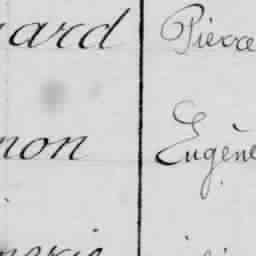 ard Pierre
non Eugène